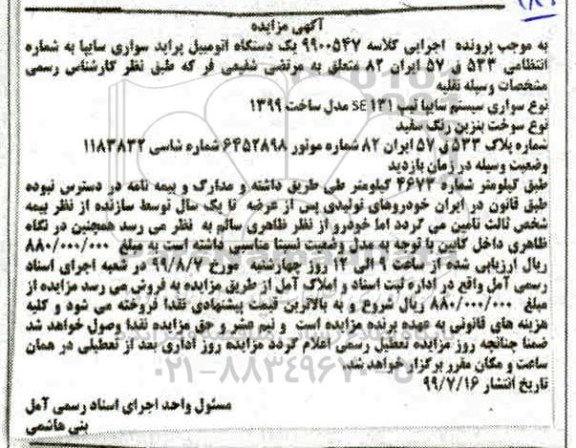 آگهی مزایده
به موجب پرونده اجرایی کلاسه ۹۹۰۰۵۴۷ یک دستگاه اتومبیل پراید سواری سایپا به شماره
انتظامی ۵۳۳ ق ۵۷ ایران ۸۲ متعلق به مرتضی شفیعی فر که طبق نظر کارشناس رسمی
مشخصات وسیله نقلیه
نوع سواری سیستم سایپا تیپ SE ۱۳۱ مدل ساخت ۱۳۹۹
نوع سوخت بنزین رنگ سفید
شماره پلاک ۵۳۳ ق ۵۷ ایران ۸۲ شماره موتور ۶۴۵۲۸۹۸ شماره شاسی ۱۱۸۳۸۳۲
وضعیت وسیله در زمان بازدید
طبق کیلومتر شماره ۴۶۷۳ کیلومتر طی طریق داشته و مدارک و بیمه نامه در دسترس نبوده
طبق قانون در ایران خودروهای تولیدی پس از عرضه تا یک سال توسط سازنده از نظر بیمه
شخص ثالث تامین می گردد اما خودرو از نظر ظاهری سالم به نظر می رسد همچنین در نگاه
ظاهری داخل کابین با توجه به مدل وضعیت نسبتا مناسبی داشته است به مبلغ ۸۸۰/۰۰۰/۰۰۰
ریال ارزیابی شده از ساعت ۹ الی ۱۲ روز چهارشنبه مورخ ۹۹/۸/۷ در شعبه اجرای اسناد
رسمی آمل واقع در اداره ثبت اسناد و املاک آمل از طریق مزایده به فروش می رسد مزایده از
مبلغ ۸۸۰/۰۰۰/۰۰۰ ریال شروع و به بالاترین قیمت پیشنهادی نقدا فروخته می شود و کلیه
هزینه های قانونی به عهده برنده مزایده است و نیم عشر و حق مزایده نقدا وصول خواهد شد
ضمنا چنانچه روز مزایده تعطیل رسمی اعلام گردد مزایده روز اداری بعد از تعطیلی در همان
ساعت و مکان مقرر برگزار خواهد شد.
تاریخ انتشار ۹۹/۷/۱۶
۰۲۱-۸۸۳۴۹۶۷۰
مسئول واحد اجرای اسناد رسمی آمل
بنی هاشمی